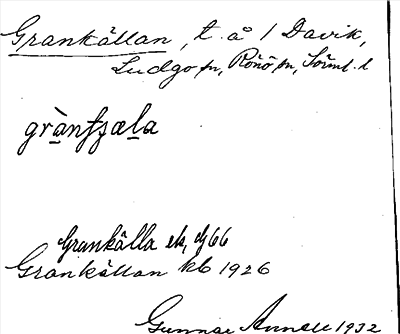 Grankällan, t. å 1 Davik,
Ludgo sn, Rönö hd, Söderml. l
grànfzæla
Grankälla ek, dj 66
Grankällan kb 1926
Gunnar Annell 1932